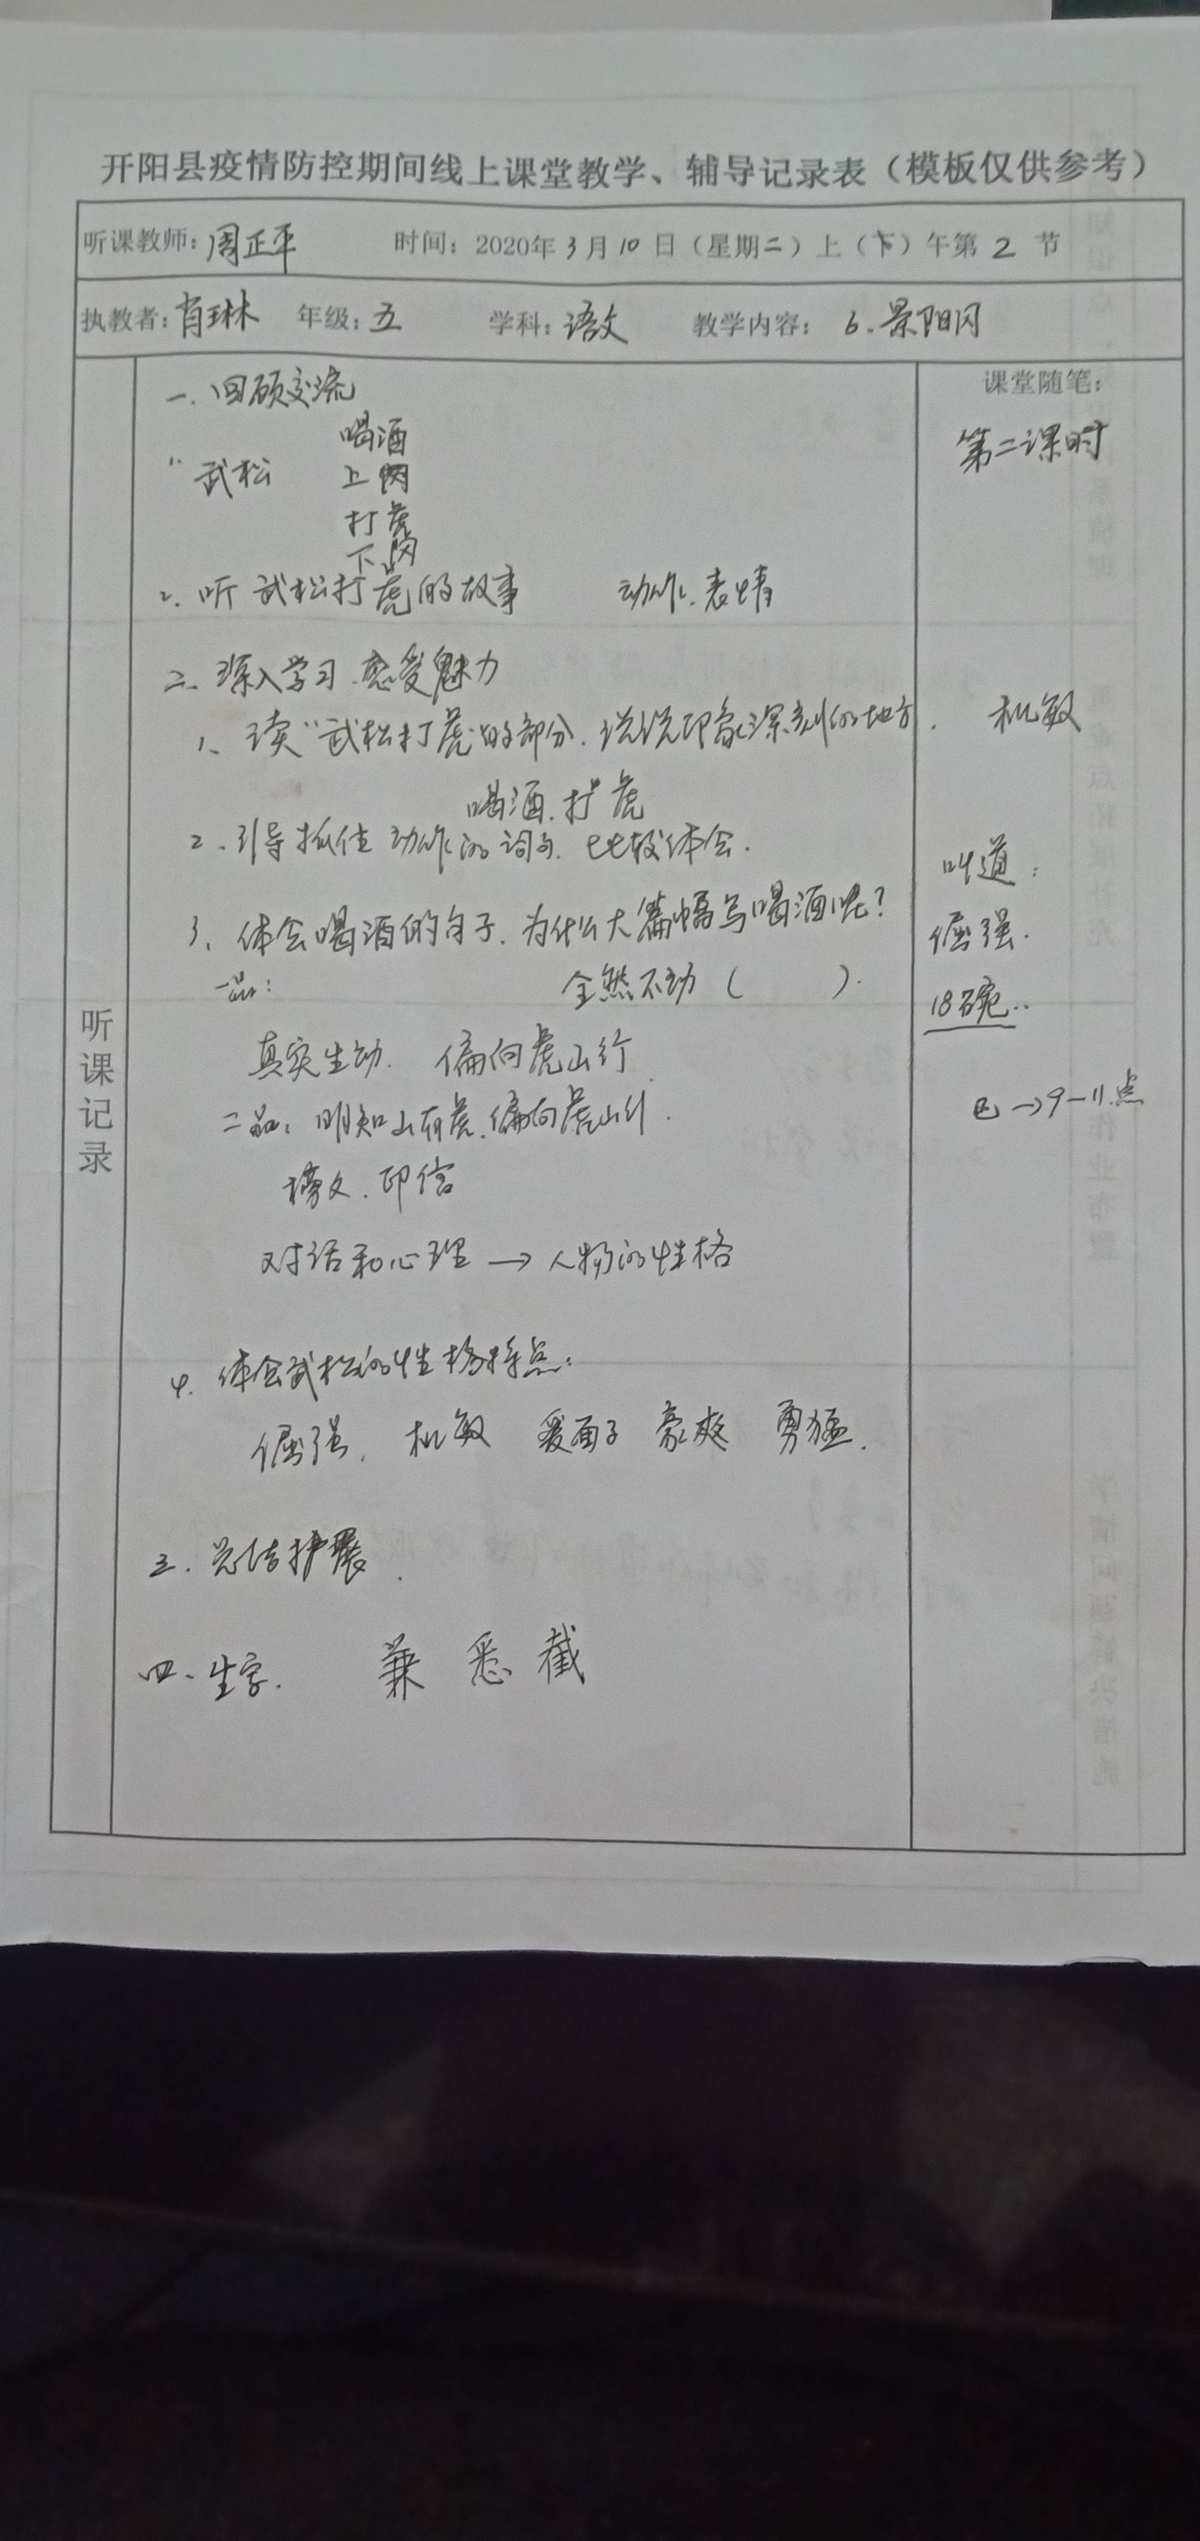 开阳县疫情防控期间线上课堂教学、辅导记录表（模板仅供参考）
听课教师：周正平 时间：2020年3月10日（星期二）上（下）午第2节
执教者：肖琳 年级：五 学科：语文 教学内容：6.景阳冈
听课记录
一、回顾交流
喝酒
1、武松 上冈
打虎
下冈
2、听武松打虎的故事 动作、表情
二、深入学习 感受魅力
1、读"武松打虎"的部分，说说印象深刻的地方．
喝酒．打虎
2、引导抓住动作的词句、比较体会．
3、体会喝酒的句子．为什么大篇幅写喝酒呢？
一品： 全然不动（ ）．
真实生动． 偏向虎山行
二品：明知山有虎、偏向虎山行．
榜文．印信
对话和心理→人物的性格
4．体会武松的性格特点：
倔强． 机敏 爱面子 豪爽 勇猛．
三．总结扩展．
四、生字． 兼 悉 截
课堂随笔：
第二课时
机敏
叫道：
倔强．
18碗．．
巳→9-11点